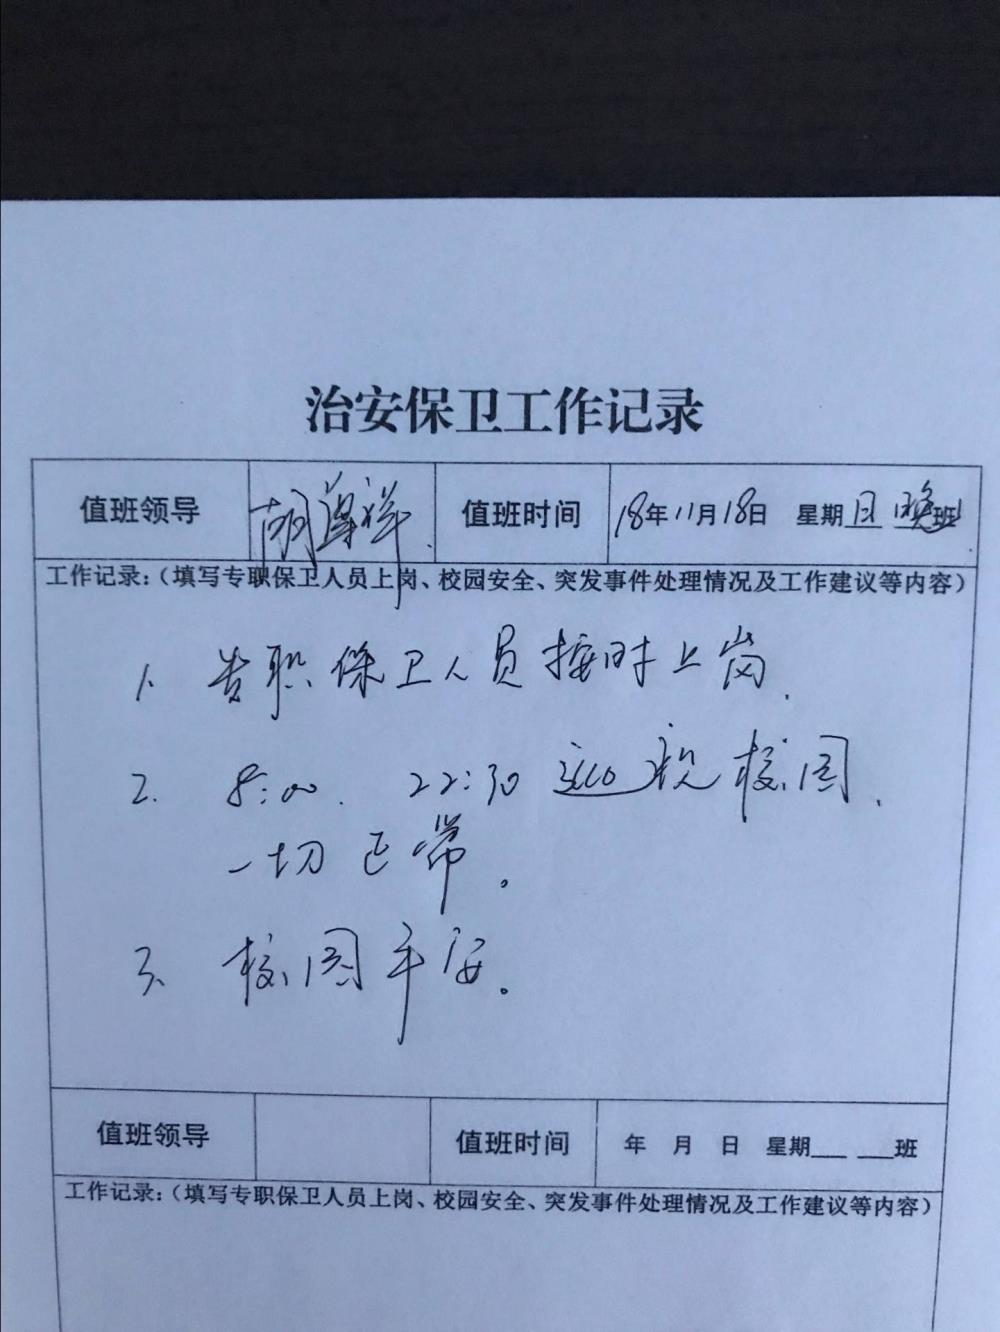 治安保卫工作记录
值班领导 胡 祥 值班时间 18年11月18日 星期日 晚班
工作记录:(填写专职保卫人员上岗、校园安全、突发事件处理情况及工作建议等内容)
1. 专职保卫人员按时上岗.
2. 8:00. 22:30 巡视校园.
一切正常。
3. 校园平安。
值班领导 值班时间 年 月 日 星期___ ___班
工作记录:(填写专职保卫人员上岗、校园安全、突发事件处理情况及工作建议等内容)